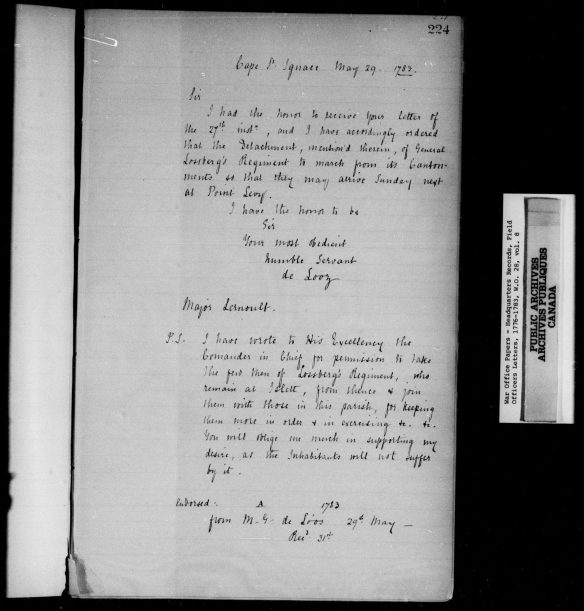 224
Cape St. Ignace May 29. 1783.
Sir
I had the honor to receive your Letter of
the 27th inst., and I have accordingly ordered
that the Detachment, mention'd therein, of General
Lossberg's Regiment to march from its Canton-
ments so that they may arrive Sunday next
at Point Levy.
I have the honor to be
Sir
Your most obedient
humble Servant
de Looz
Major Lernoult.
P.S. I have wrote to His Excellency the
Comander in Chief for permission to take
the few men of Lossberg's Regiment, who
remain at Islett, from thence & join
them with those in this parish, for keeping
them more in order & in exercising &c. &c.
You will oblige me much in supporting my
desire, as the Inhabitants will not suffer
by it.
Endorsed:- A 1783
from M-G- de Loos 29th May —
Recd 31st
War Office Papers - Headquarters Records, Field
Officers Letters, 1776-1783, W.O. 28, vol. 8
PUBLIC ARCHIVES
ARCHIVES PUBLIQUES
CANADA